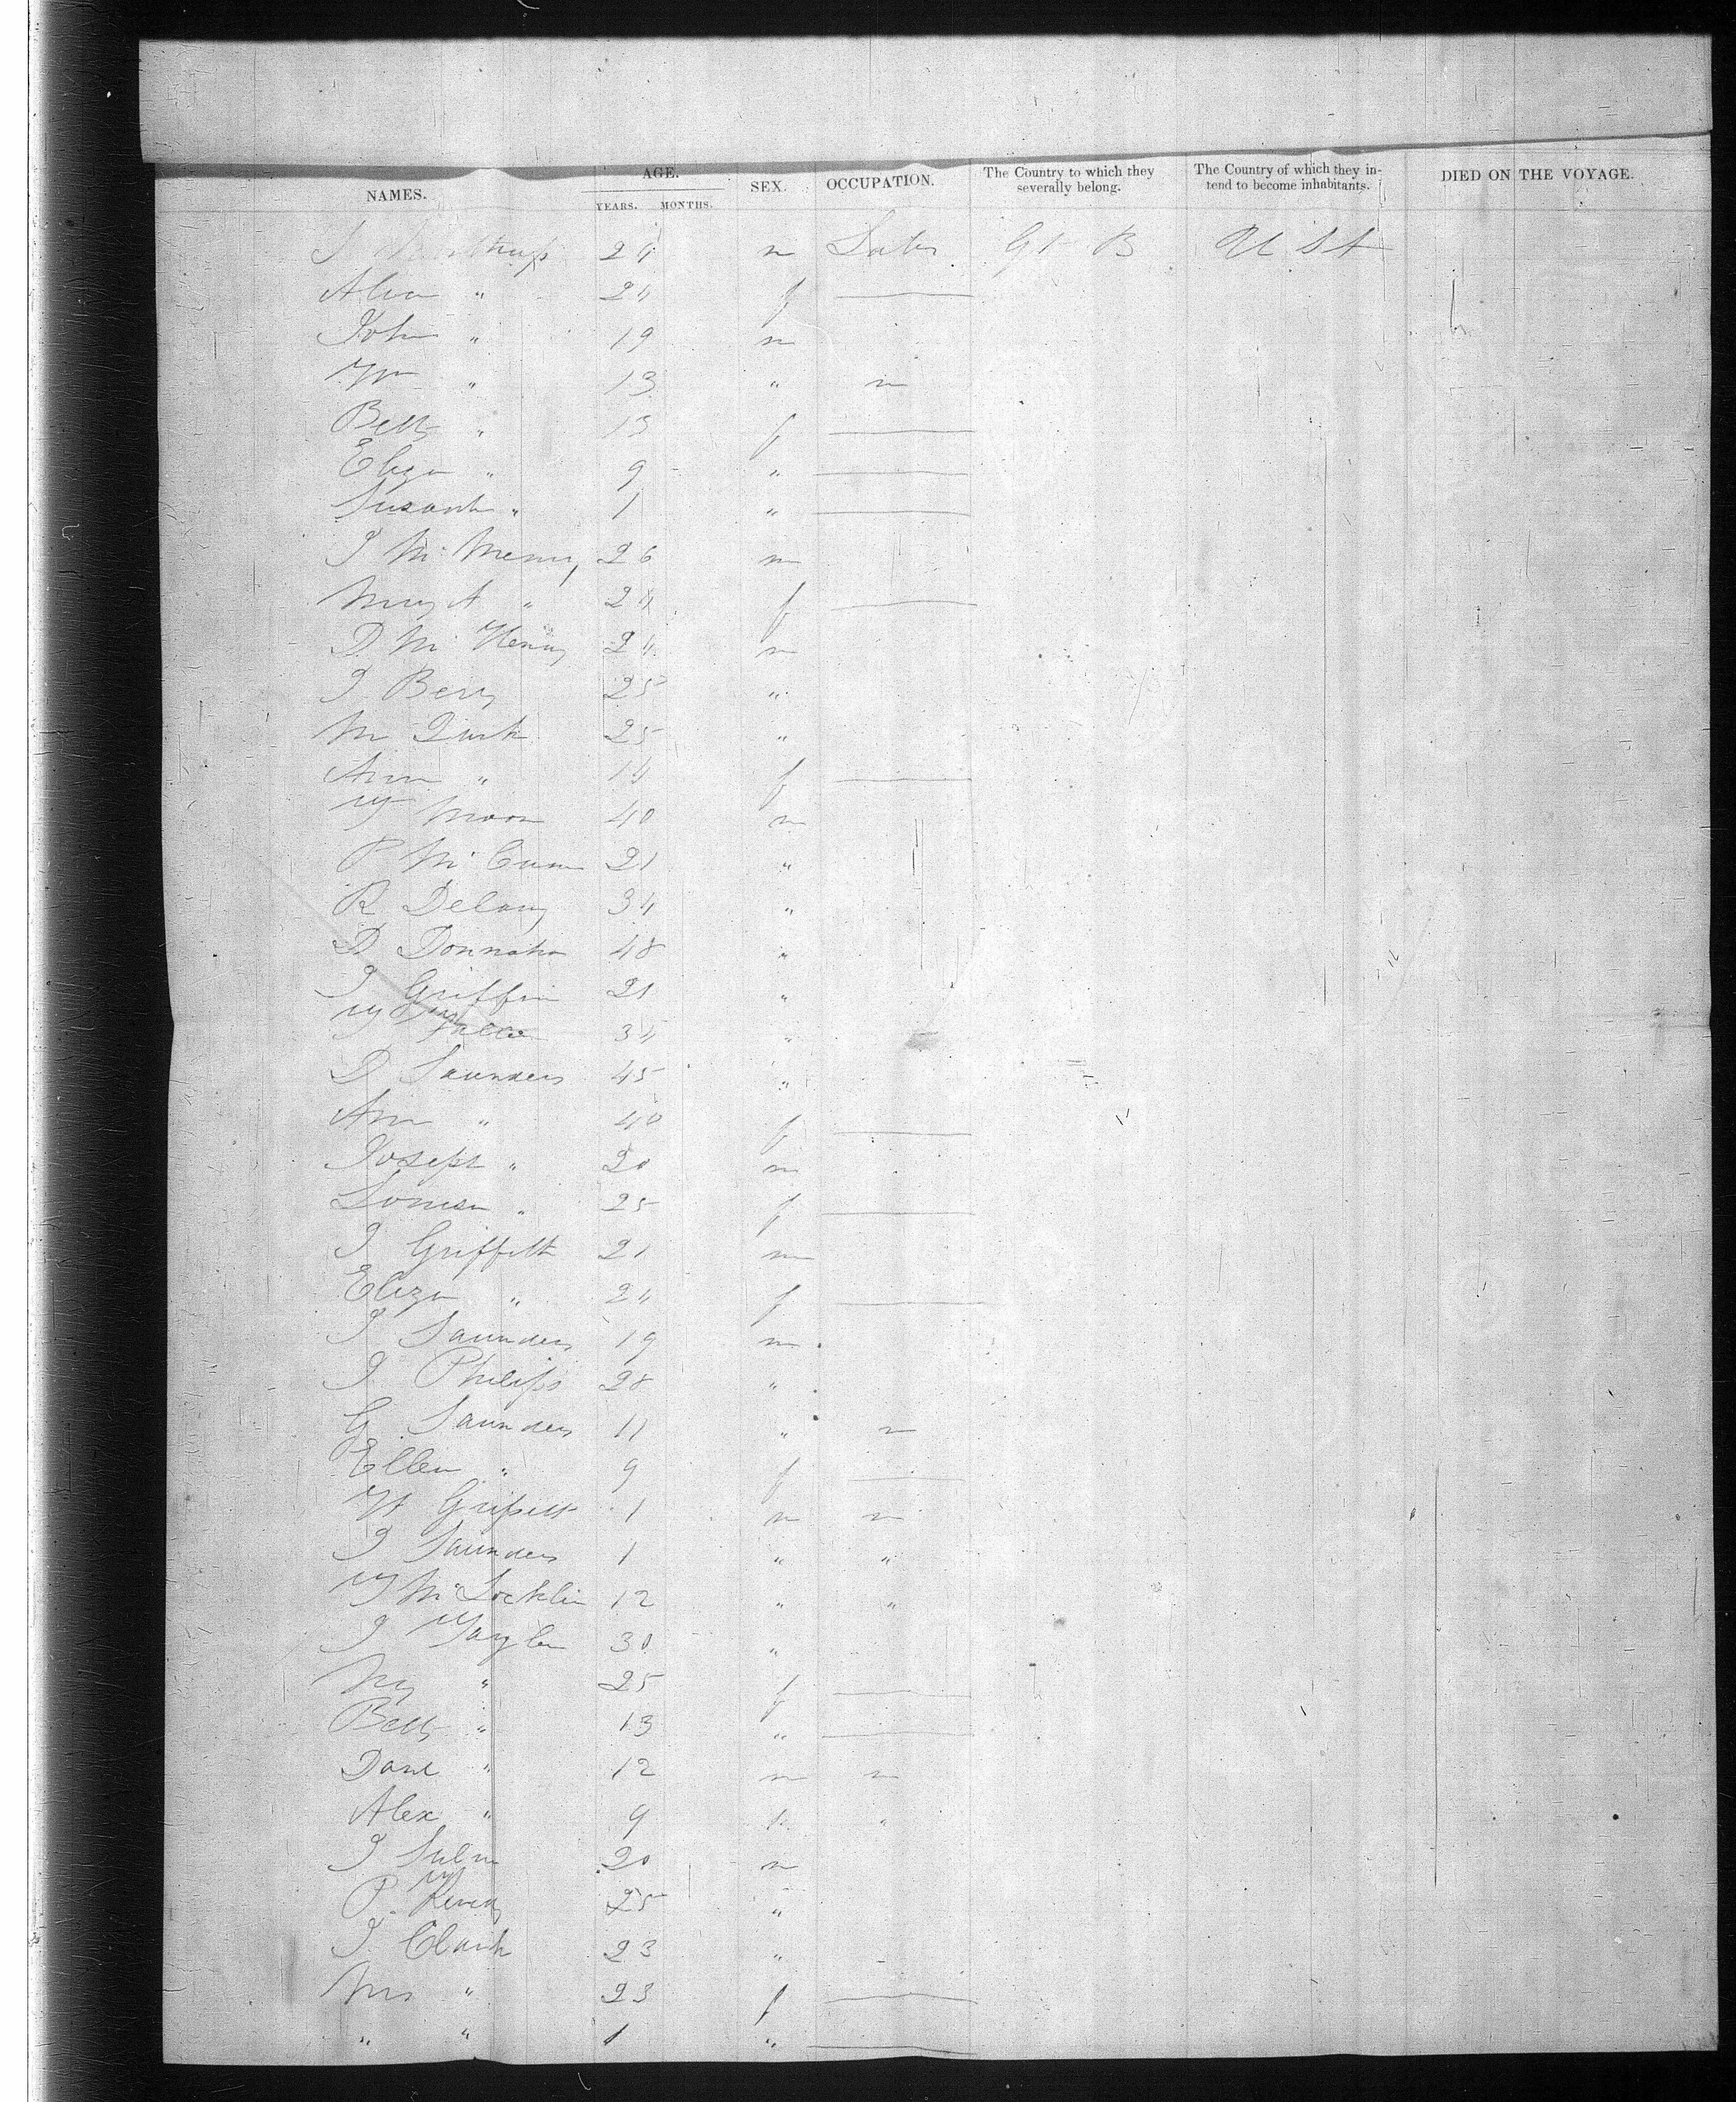 NAMES. AGE. YEARS. MONTHS. SEX. OCCUPATION. The Country to which they severally belong. The Country of which they intend to become inhabitants. DIED ON THE VOYAGE.
24 m Labr Gt B U St
" 24 f
John " 19 m
Wm " 13 " m
Betty " 13 f
Eliza " 9 "
Susanh " 1 "
26 m
Mary A " 24 f
D Mc Henry 24 m
J Berry 25 "
M 25 "
Ann " 14 f
W Moon 40 m
P Mc 21 "
R Delany 34 "
D Donnaho 48 "
J Griffin 21 "
W 34 "
D Saunders 45 "
Ann " 40 f
Joseph " 20 m
Louisa " 25 f
J Griffith 21 m
Eliza " 24 f
J Saunders 19 m
J Philips 28 "
G Saunders 11 " m
Ellen " 9 f
1 m m
J Saunders 1 " "
W Mc Locklin 12 " "
J 30 "
" 25 f
Betty " 13 "
Danl " 12 m m
Alex " 9 "
J 20 m
P 25 "
J Clark 23 "
Mrs " 23 f
" " 1 "